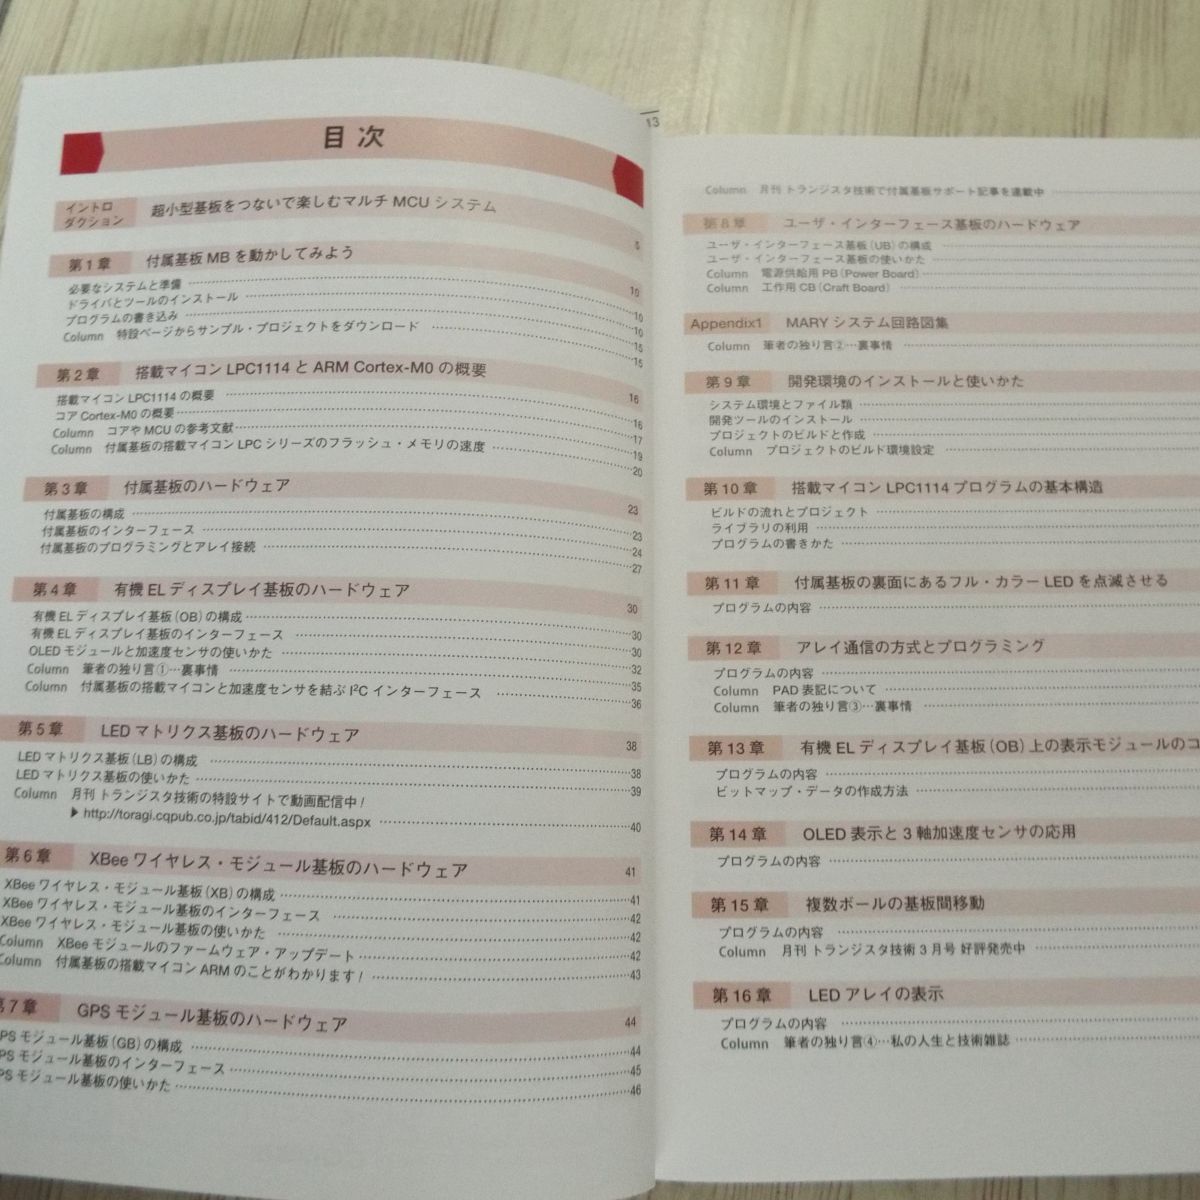 13
目次
イントロ
ダクション 超小型基板をつないで楽しむマルチ MCU システム 5
第1章 付属基板 MB を動かしてみよう 10
必要なシステムと準備 10
ドライバとツールのインストール 10
プログラムの書き込み 15
Column 特設ページからサンプル・プロジェクトをダウンロード 15
第2章 搭載マイコン LPC1114 と ARM Cortex-M0 の概要 16
搭載マイコン LPC1114 の概要 16
コア Cortex-M0 の概要 17
Column コアや MCU の参考文献 19
Column 付属基板の搭載マイコン LPC シリーズのフラッシュ・メモリの速度 20
第3章 付属基板のハードウェア 23
付属基板の構成 23
付属基板のインターフェース 24
付属基板のプログラミングとアレイ接続 27
第4章 有機 EL ディスプレイ基板のハードウェア 30
有機 EL ディスプレイ基板(OB)の構成 30
有機 EL ディスプレイ基板のインターフェース 30
OLED モジュールと加速度センサの使いかた 32
Column 筆者の独り言①…裏事情 35
Column 付属基板の搭載マイコンと加速度センサを結ぶ I²C インターフェース 36
第5章 LED マトリクス基板のハードウェア 38
LED マトリクス基板(LB)の構成 38
LED マトリクス基板の使いかた 39
Column 月刊 トランジスタ技術の特設サイトで動画配信中!
▶ http://toragi.cqpub.co.jp/tabid/412/Default.aspx 40
第6章 XBee ワイヤレス・モジュール基板のハードウェア 41
XBee ワイヤレス・モジュール基板(XB)の構成 41
XBee ワイヤレス・モジュール基板のインターフェース 42
XBee ワイヤレス・モジュール基板の使いかた 42
Column XBee モジュールのファームウェア・アップデート 42
Column 付属基板の搭載マイコン ARM のことがわかります! 43
第7章 GPS モジュール基板のハードウェア 44
PS モジュール基板(GB)の構成 44
PS モジュール基板のインターフェース 45
PS モジュール基板の使いかた 46
Column 月刊 トランジスタ技術で付属基板サポート記事を連載中
第8章 ユーザ・インターフェース基板のハードウェア
ユーザ・インターフェース基板(UB)の構成
ユーザ・インターフェース基板の使いかた
Column 電源供給用 PB(Power Board)
Column 工作用 CB(Craft Board)
Appendix1 MARY システム回路図集
Column 筆者の独り言②…裏事情
第9章 開発環境のインストールと使いかた
システム環境とファイル類
開発ツールのインストール
プロジェクトのビルドと作成
Column プロジェクトのビルド環境設定
第10章 搭載マイコン LPC1114 プログラムの基本構造
ビルドの流れとプロジェクト
ライブラリの利用
プログラムの書きかた
第11章 付属基板の裏面にあるフル・カラー LED を点滅させる
プログラムの内容
第12章 アレイ通信の方式とプログラミング
プログラムの内容
Column PAD 表記について
Column 筆者の独り言③…裏事情
第13章 有機 EL ディスプレイ基板(OB)上の表示モジュールのコ
プログラムの内容
ビットマップ・データの作成方法
第14章 OLED 表示と 3 軸加速度センサの応用
プログラムの内容
第15章 複数ボールの基板間移動
プログラムの内容
Column 月刊 トランジスタ技術 3 月号 好評発売中
第16章 LED アレイの表示
プログラムの内容
Column 筆者の独り言④…私の人生と技術雑誌